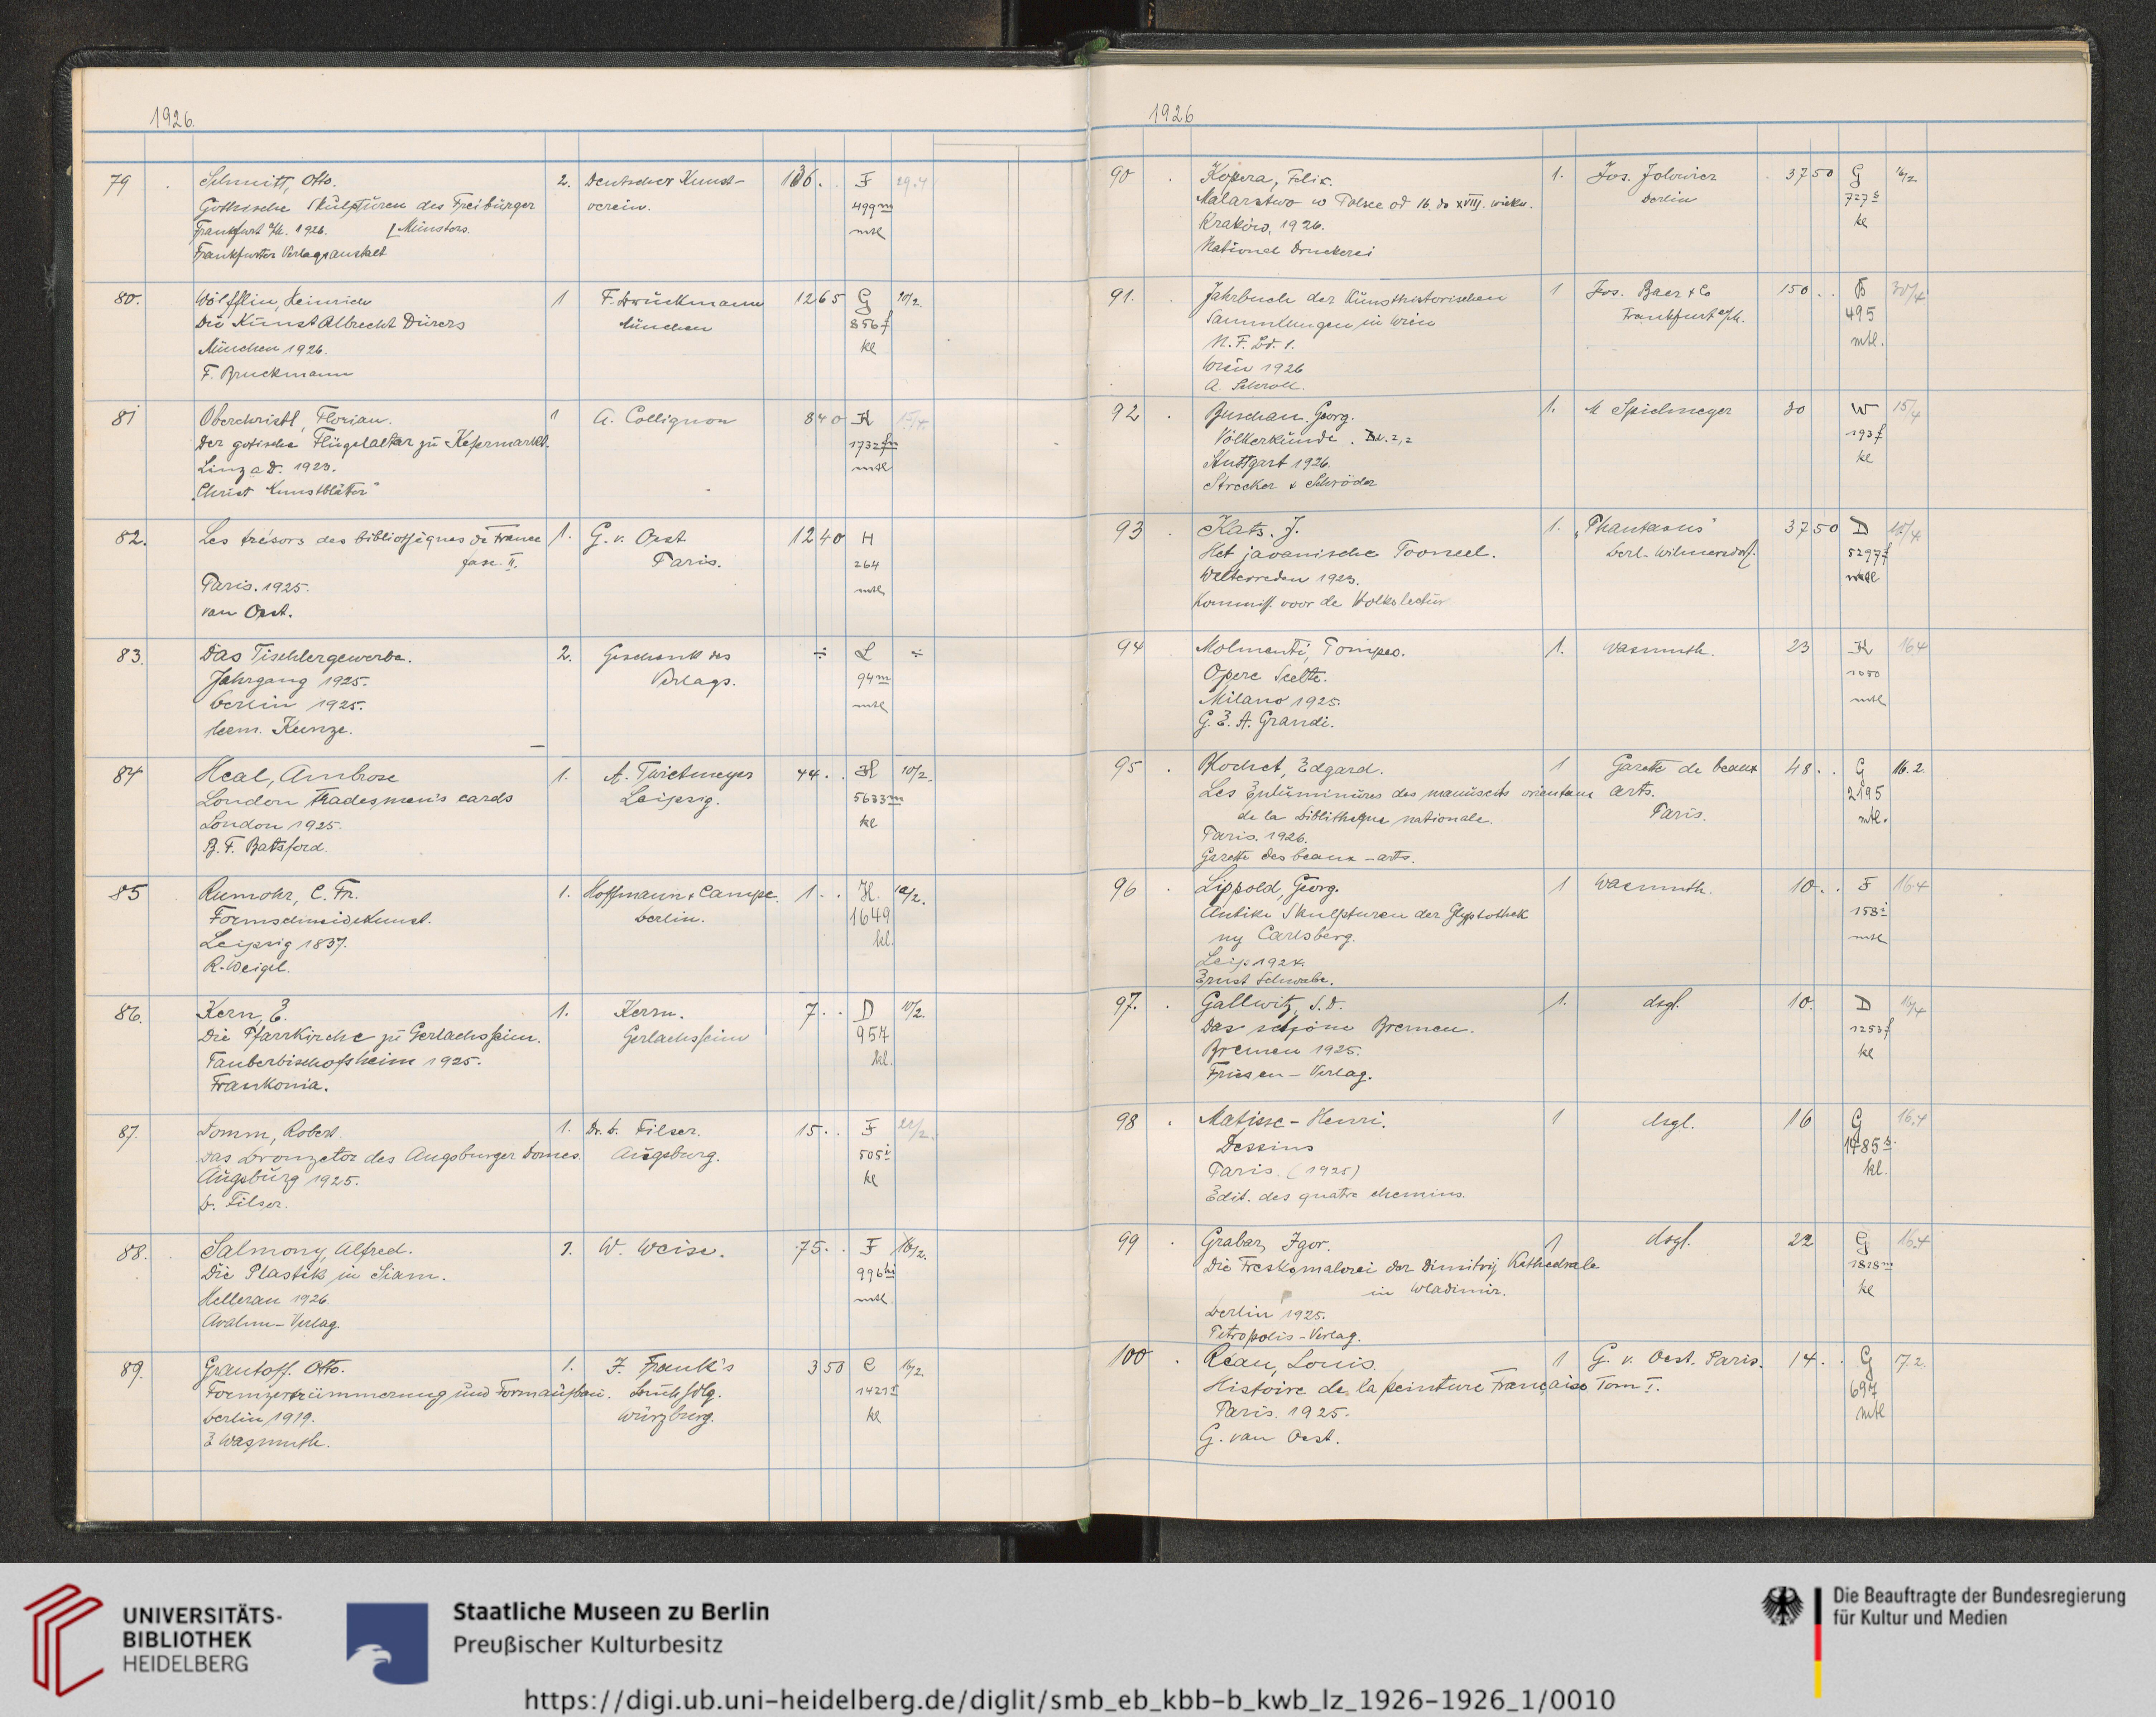 1926.
79 . Schmitt, Otto. 2. Deutscher Kunst- 136. F 29.4
Gothische Skulpturen des Freiburger verein. 499m
Frankfurt a/M. 1926. [Münsters. mtl
Frankfurter Verlagsanstalt
80. Wölfflin, Heinrich 1 F. Bruckmann 1265 G 10/2.
Die Kunst Albrecht Dürers München 856f
München 1926. kl
F. Bruckmann
81 Oberchristl, Florian. 1 A. Collignon 840 K 15/4
Der gotische Flügelaltar zu Kefermarkt. 1732fm
Linz a D. 1923. mtl
"Christ Kunstblätter"
82. Les trésors des bibliothèques de France 1. G. v. Oest 1240 H
fasc. II. Paris. 264
Paris. 1925. mtl
van Oest.
83. Das Tischlergewerbe. 2. Geschenk des ÷ L ÷
Jahrgang 1925. Verlags. 94m
Berlin 1925. mtl
Herm. Kunze.
84 Heal, Ambrose 1. A. Twietmeyer 44. . H 10/2.
London tradesmen's cards Leipzig. 5633m
London 1925. kl
B. T. Batsford.
85 Rumohr, C. Fr. 1. Hoffmann & Campe. 1. . H. 10/2.
Formschneidekunst. Berlin. 1649
Leipzig 1837. kl.
R. Weigel.
86. Kern, E. 1. Kern. 7. . D 10/2.
Die Pfarrkirche zu Gerlachsheim. Gerlachsheim 957
Tauberbischofsheim 1925. kl.
Frankonia.
87. Domm, Robert. 1. Dr. B. Filser. 15. . F 22/2.
Das Bronzetor des Augsburger Domes. Augsburg. 505i
Augsburg 1925. kl
B. Filser.
88. Salmony, Alfred. 1. W. Weise. 75. . F 16/2.
Die Plastik in Siam. 996hi
Hellerau 1926 mtl
Avalun-Verlag.
89. Grautoff. Otto. 1. J. Frank's 350 C 16/2.
Formzertrümmerung und Formaufbau. Buchhdlg. 1421
Berlin 1919. Würzburg. kl
E Wasmuth.
1926
90 . Kopera, Felix. 1. Jos. Jolowicz 3750 G 16/2
Malarstwo w Polsce od 16. do XVIII. wieku. Berlin 727
Kraków, 1926. kl
National Druckerei
91. . Jahrbuch der Kunsthistorischen 1 Jos. Baer & Co 150 . . B 30/4
Sammlungen in Wien Frankfurt a/M. 495
N. F. Bd. 1. mtl.
Wien 1926
A. Schroll.
92 . Buschan, Georg. 1. M Spielmeyer 30 W 15/4
Völkerkunde. Bd. 2,2 193f
Stuttgart 1926. kl
Strecker & Schröder
93 . Kats, J. 1. "Phantasus" 3750 D 15/4
Het javanische Tooneel. Berl. Wilmersdorf. 5297f
Weltevreden 1923. mtl
Kommiss. voor de Volkslectuur
94 . Molmenti, Pompeo. 1. Wasmuth. 23 K 16.4
Opere Scelte. 1050
Milano 1925. mtl
G. E. A. Grandi.
95 . Blochet, Edgard. 1 Gazette de beaux 48. . G 16.2.
Les Enluminures des manuscits orientaux arts. 2195
de la Biblithèque nationale. Paris. mtl.
Paris. 1926.
Gazette des beaux-arts.
96 . Lippold, Georg. 1 Wasmuth. 10. . F 16.4
Antike Skulpturen der Glyptothek 158i
ny Carlsberg. mtl
Leip 1924.
Ernst Schwabe.
97. . Gallwitz, S. D. 1. dsgl. 10. D 16/4
Das schöne Bremen. 1253f
Bremen 1925. kl
Friesen-Verlag.
98 . Matisse-Henri. 1 dsgl. 16 G 16.4
Dessins 1485
Paris. (1925) kl.
Edit. des quatre chemins.
99 . Grabar, Igor. 1 dsgl. 22 G 16.4
Die Freskomalerei der Dimitrij Kathedrale 1818m
in Wladimir. kl
Berlin 1925.
Petropolis-Verlag.
100 . Réau, Louis. 1 G. v. Oest. Paris. 14. . G 17.2.
Histoire de la peinture Française Tom I. 697
Paris. 1925. mtl
G. van Oest.
UNIVERSITÄTS-
BIBLIOTHEK
HEIDELBERG
Staatliche Museen zu Berlin
Preußischer Kulturbesitz
Die Beauftragte der Bundesregierung
für Kultur und Medien
https://digi.ub.uni-heidelberg.de/diglit/smb_eb_kbb-b_kwb_lz_1926-1926_1/0010